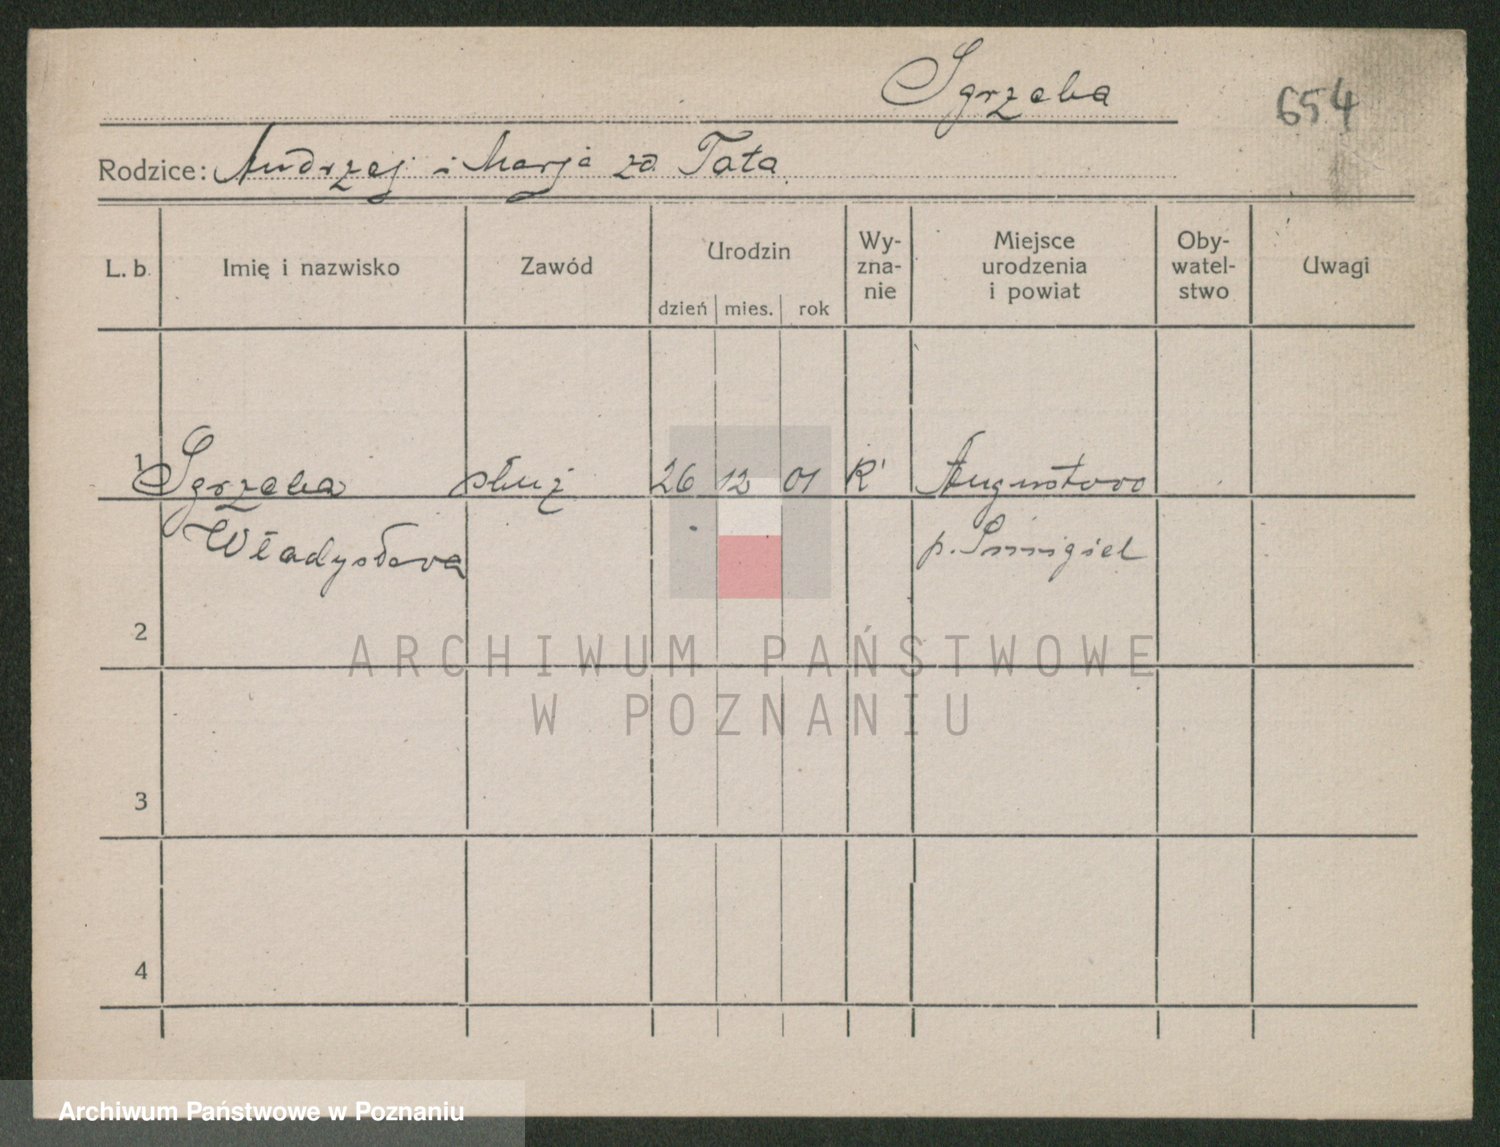 Sgrzeba
654
Rodzice: Andrzej i Marja zd. Tata
L. b. Imię i nazwisko Zawód Urodzin Wy-zna-nie Miejsce urodzenia i powiat Oby-watel-stwo Uwagi
dzień mies. rok
1 Sgrzeba służ 26 12 01 R' Augustowo
Władysława p. Śmigiel
2
ARCHIWUM PAŃSTWOWE
W POZNANIU
3
4
Archiwum Państwowe w Poznaniu